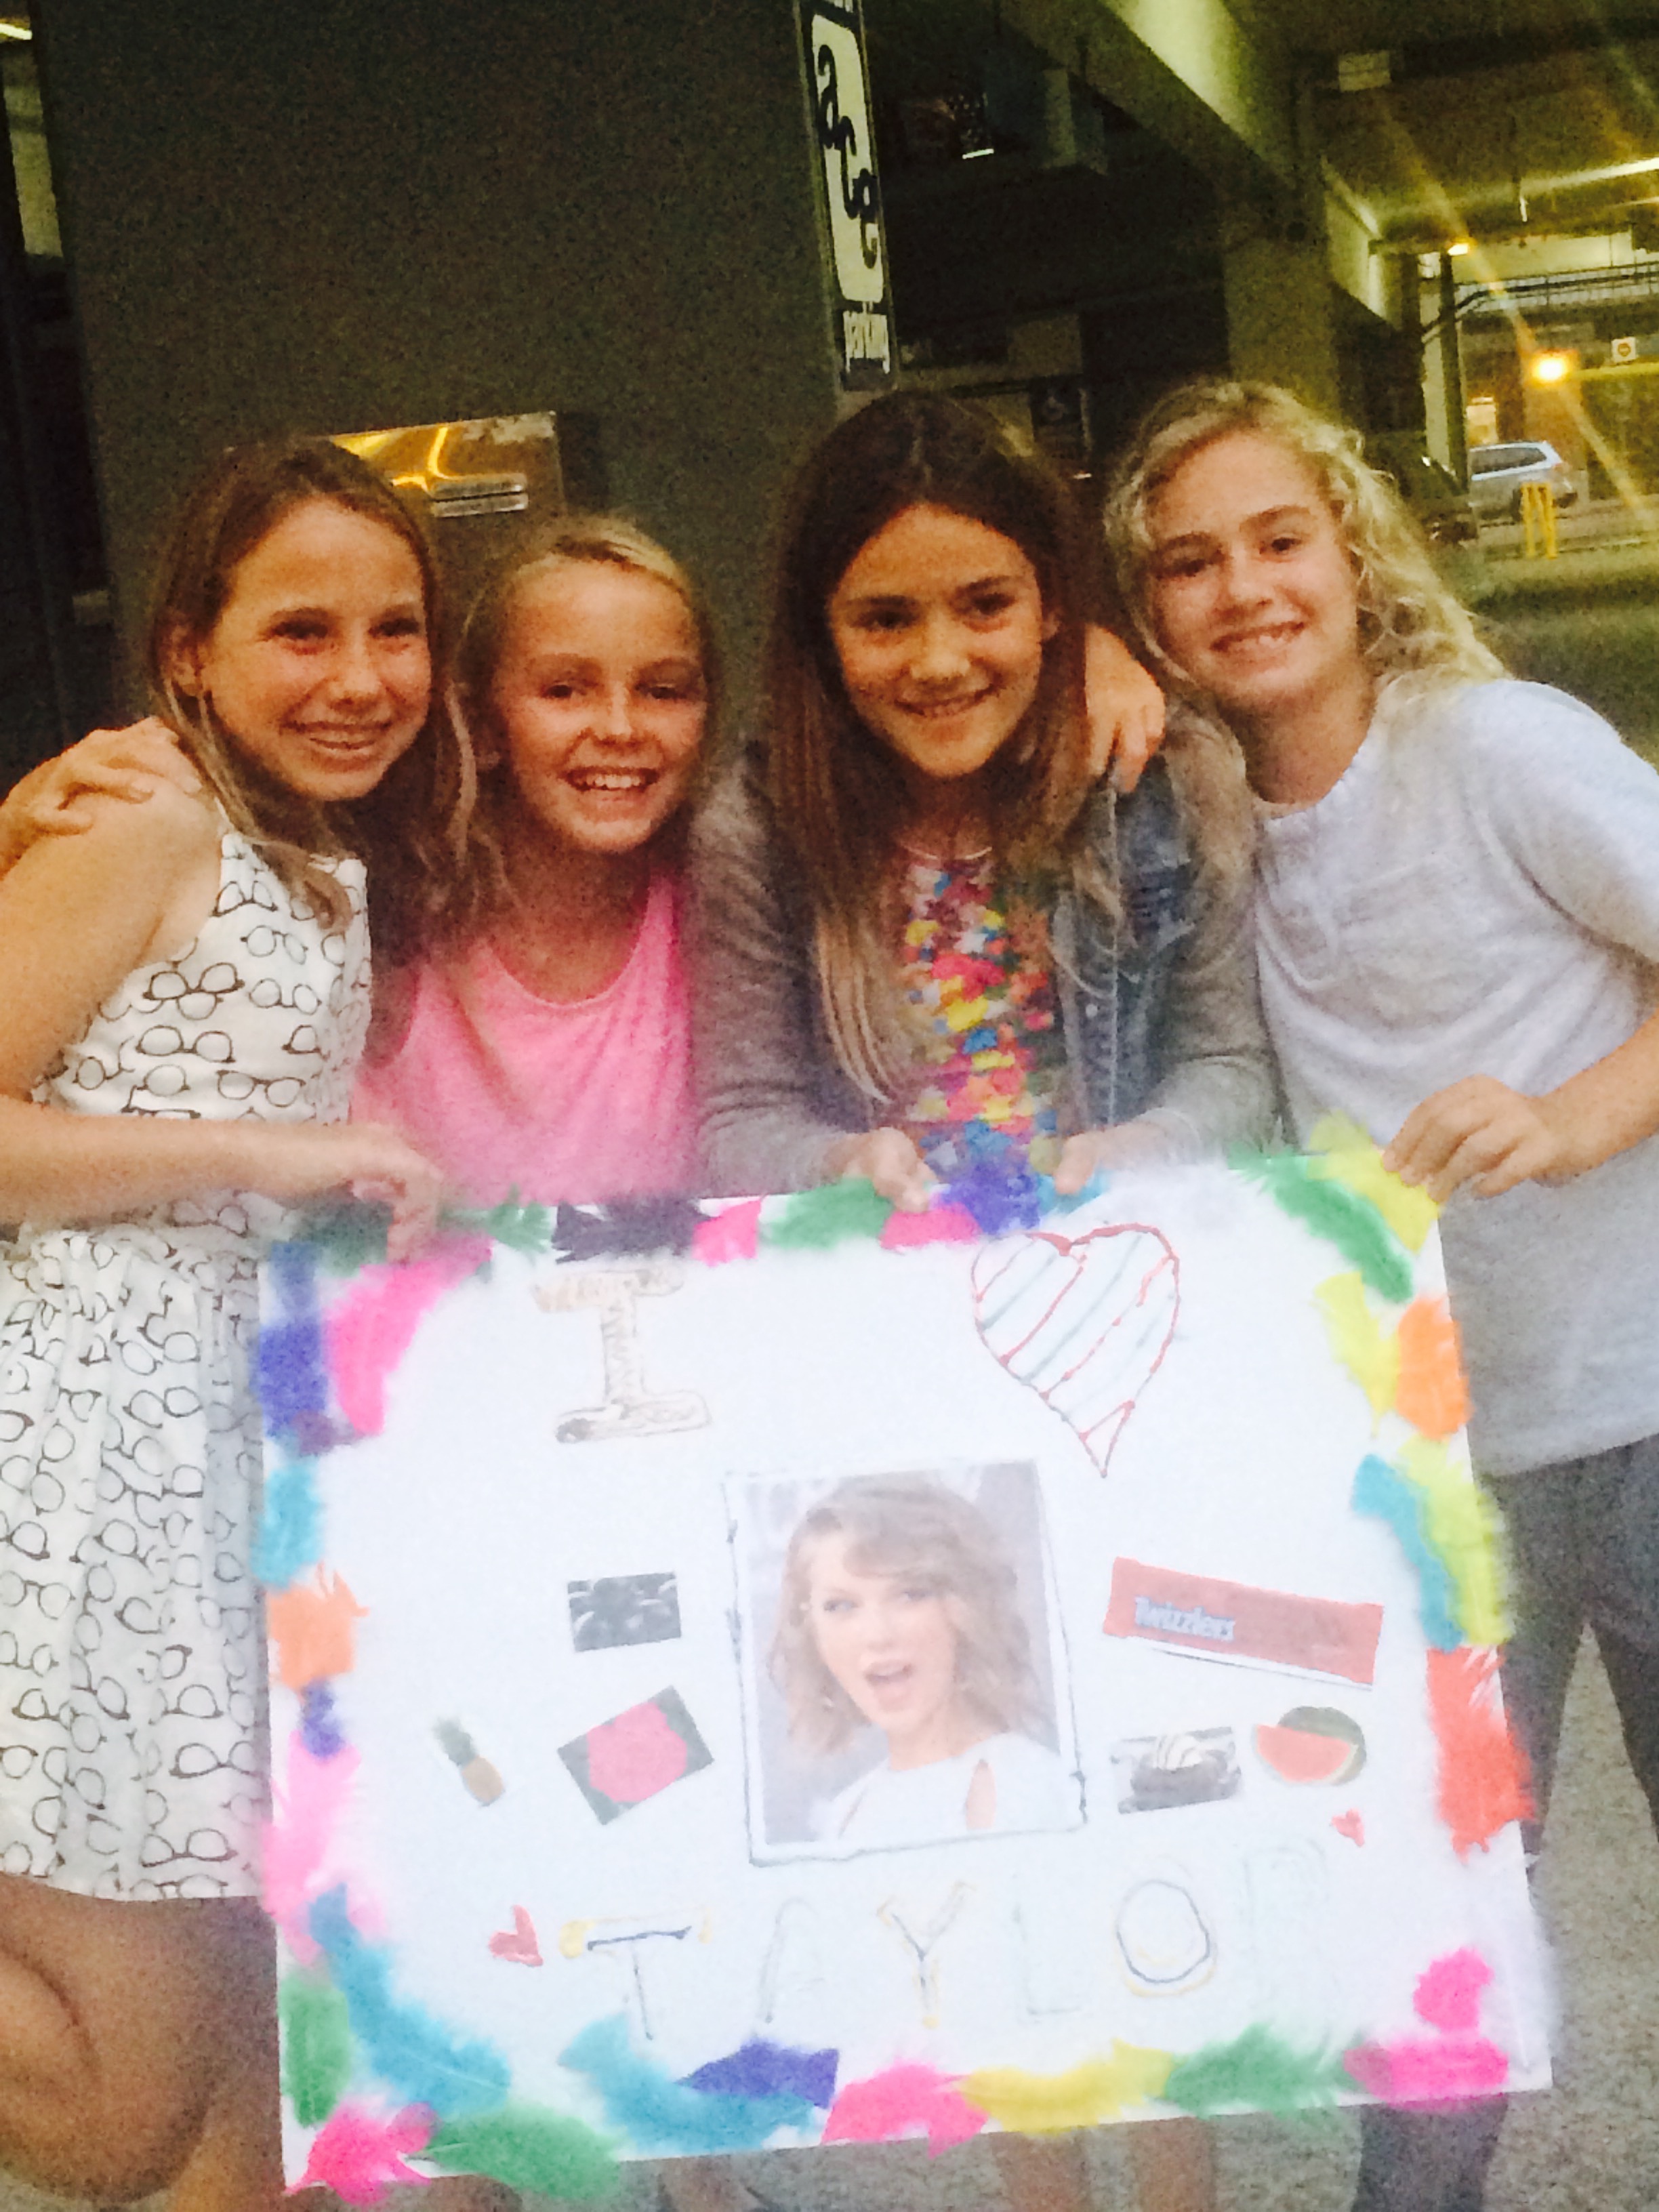 ace
parking
I
Twizzlers
TAYLOR